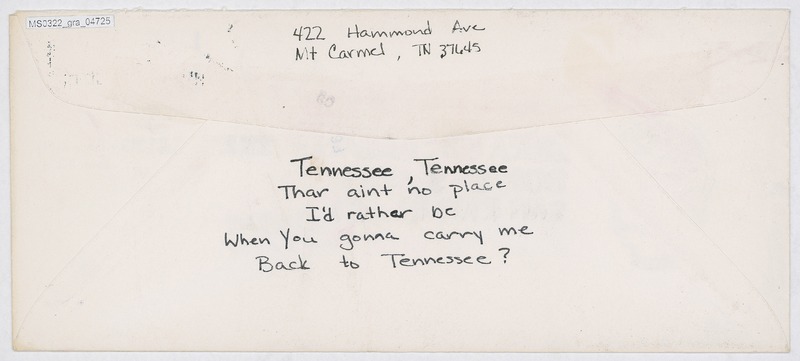 MS0322_gra_04725
422 Hammond Ave
Mt Carmel, TN 37645
Tennessee, Tennessee
Thar aint no place
I'd rather be
When You gonna carry me
Back to Tennessee?